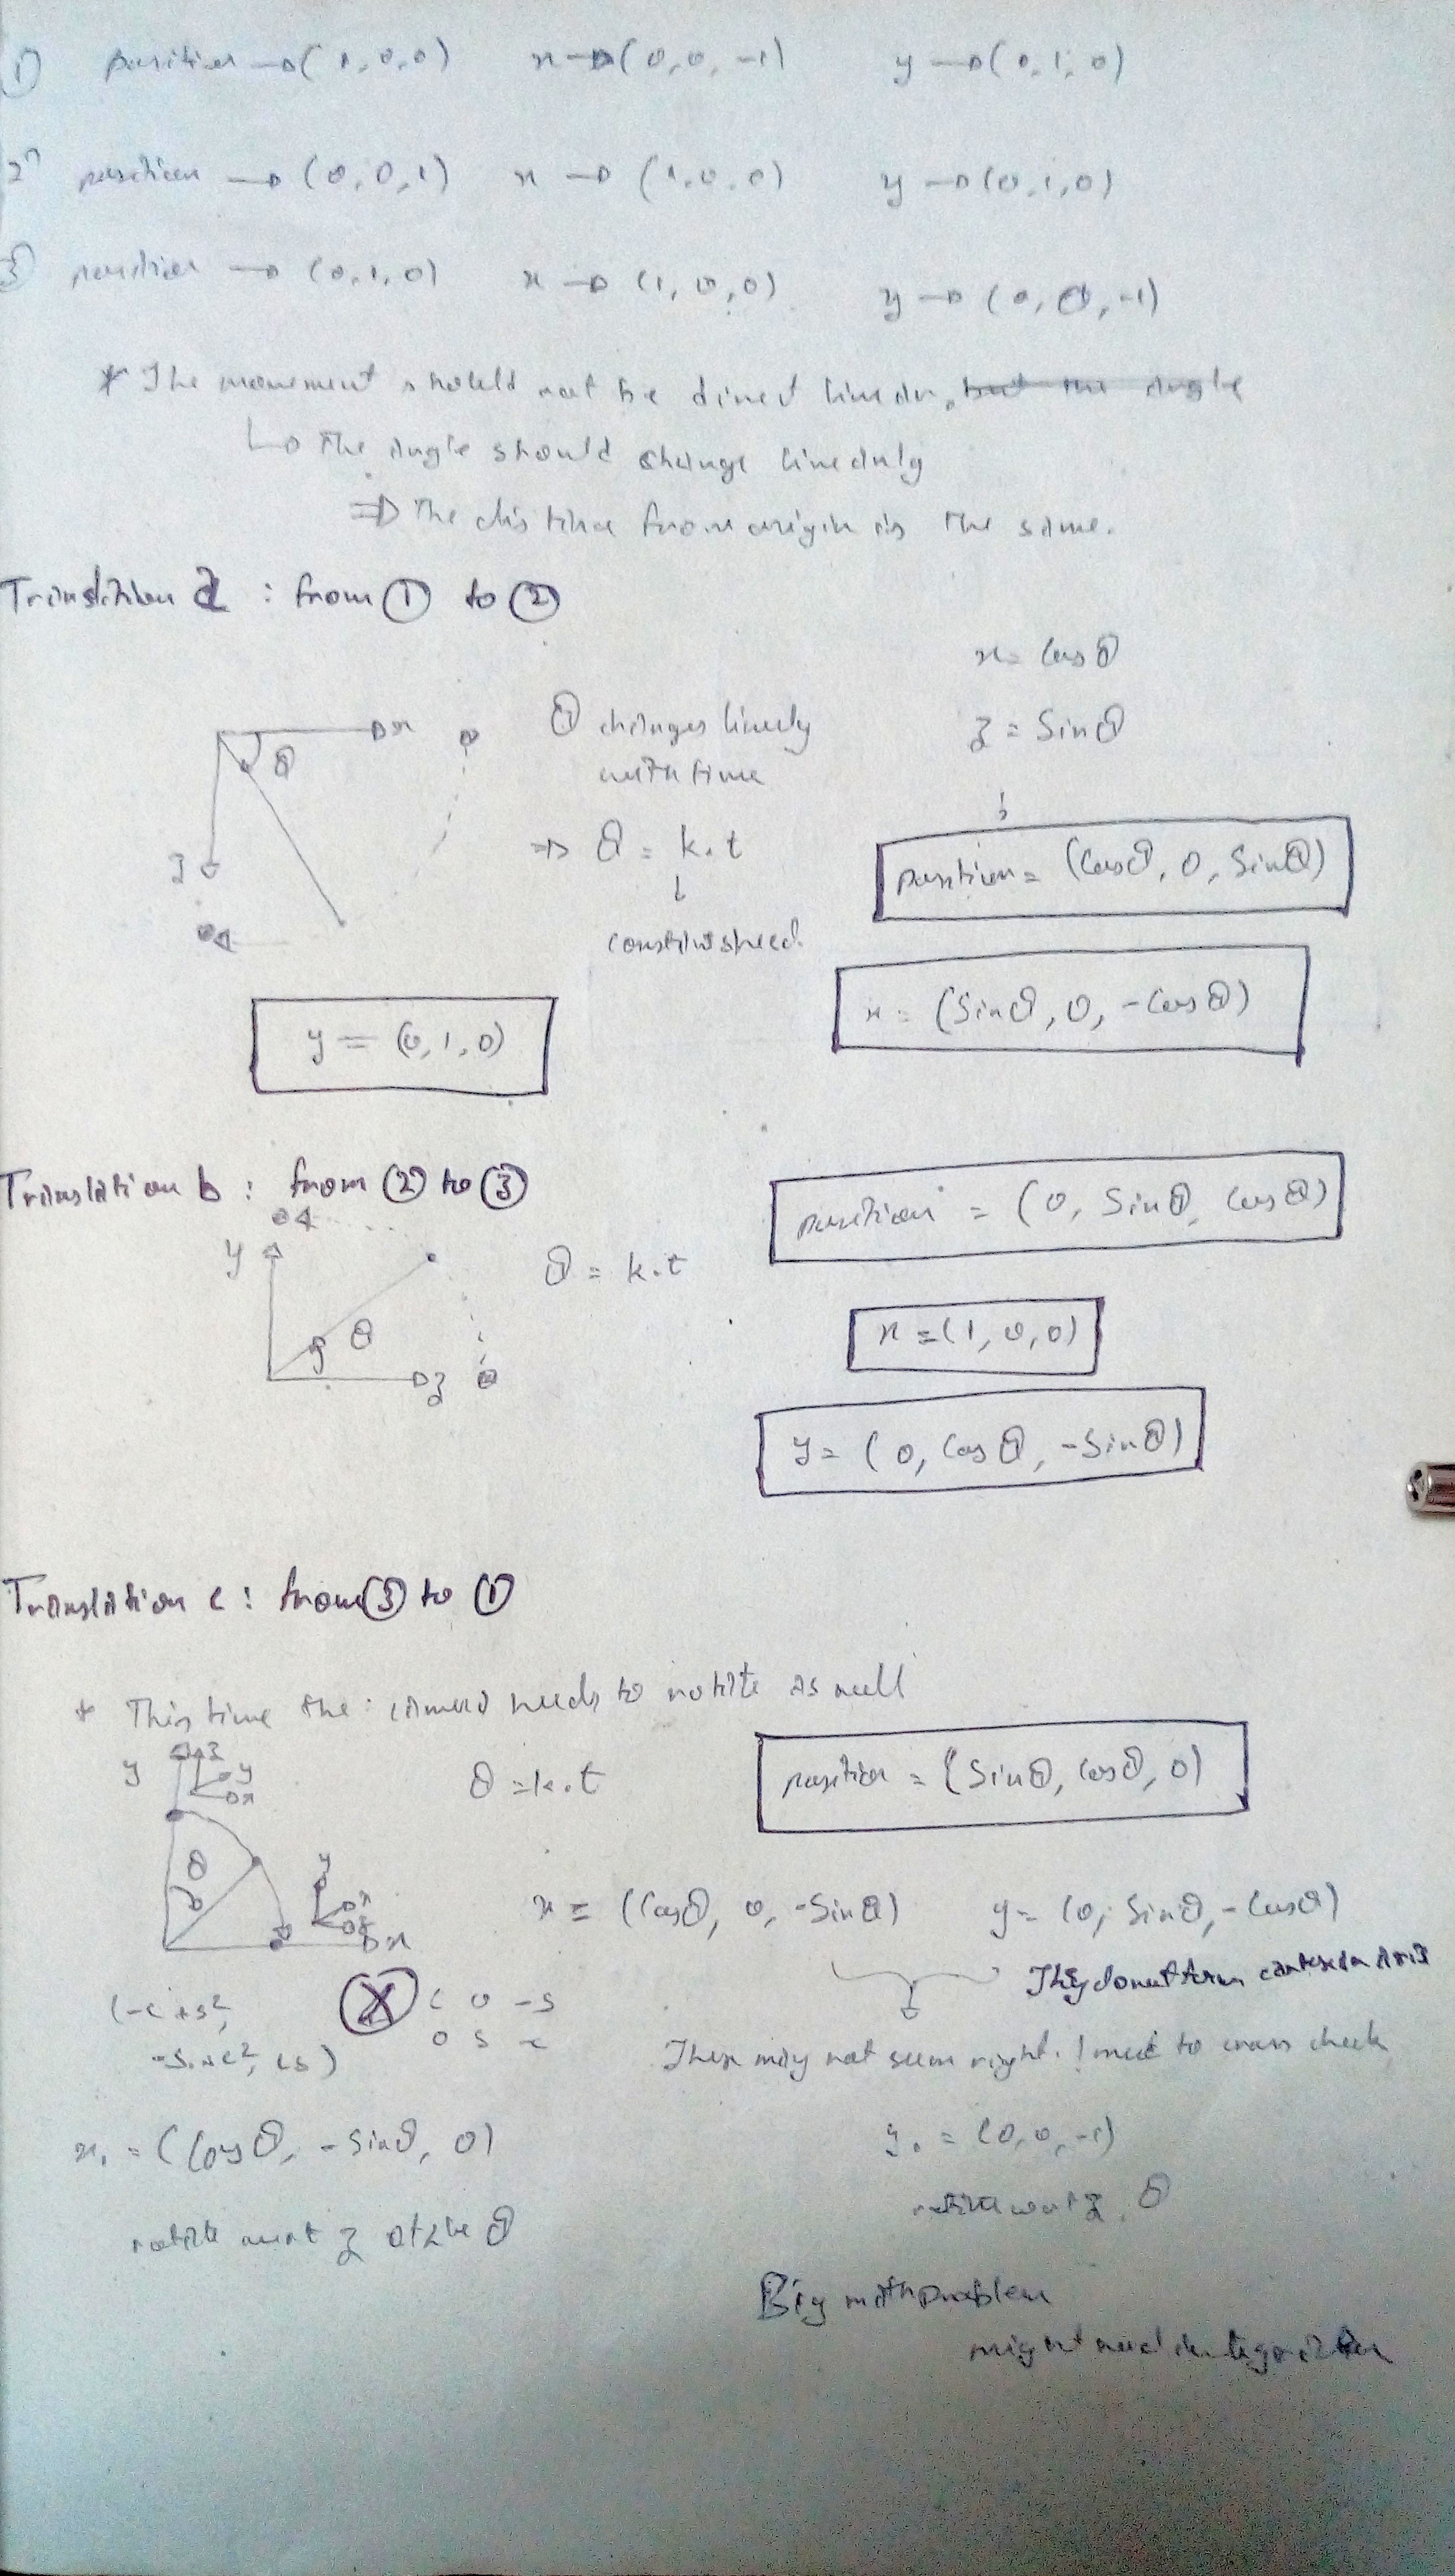 1) position → (1,0,0) x → (0,0,-1) y → (0,1,0)
2) position → (0,0,1) x → (1,0,0) y → (0,1,0)
3) position → (0,1,0) x → (1,0,0) y → (0,0,-1)
* The movement should not be direct linear, but the angle
↳ The angle should change linearly
⇒ The distance from origin is the same.
Translation a : from ① to ②
x = Cosθ
z = Sinθ
x θ
θ changes linearly
with time
z
⇒ θ = k.t
constant speed
position = (Cosθ, 0, Sinθ)
x = (Sinθ, 0, -Cosθ)
y = (0,1,0)
Translation b : from ② to ③
position = (0, Sinθ, Cosθ)
y θ z
θ = k.t
x = (1,0,0)
y = (0, Cosθ, -Sinθ)
Translation c : from ③ to ①
* This time the camera needs to rotate as well
y z y x
θ = k.t
position = (Sinθ, Cosθ, 0)
θ y x z x
x = (Cosθ, 0, -Sinθ) y = (0, Sinθ, -Cosθ)
They do not form cartesian axis
(-c + s²,
X c 0 -s
0 s -c
, cs)
These may not seem right. I need to cross check
x. = (Cosθ, -Sinθ, 0) y. = (0,0,-1)
rotate wrt z θ
rotate wrt z, θ
Big math problem
might need integration